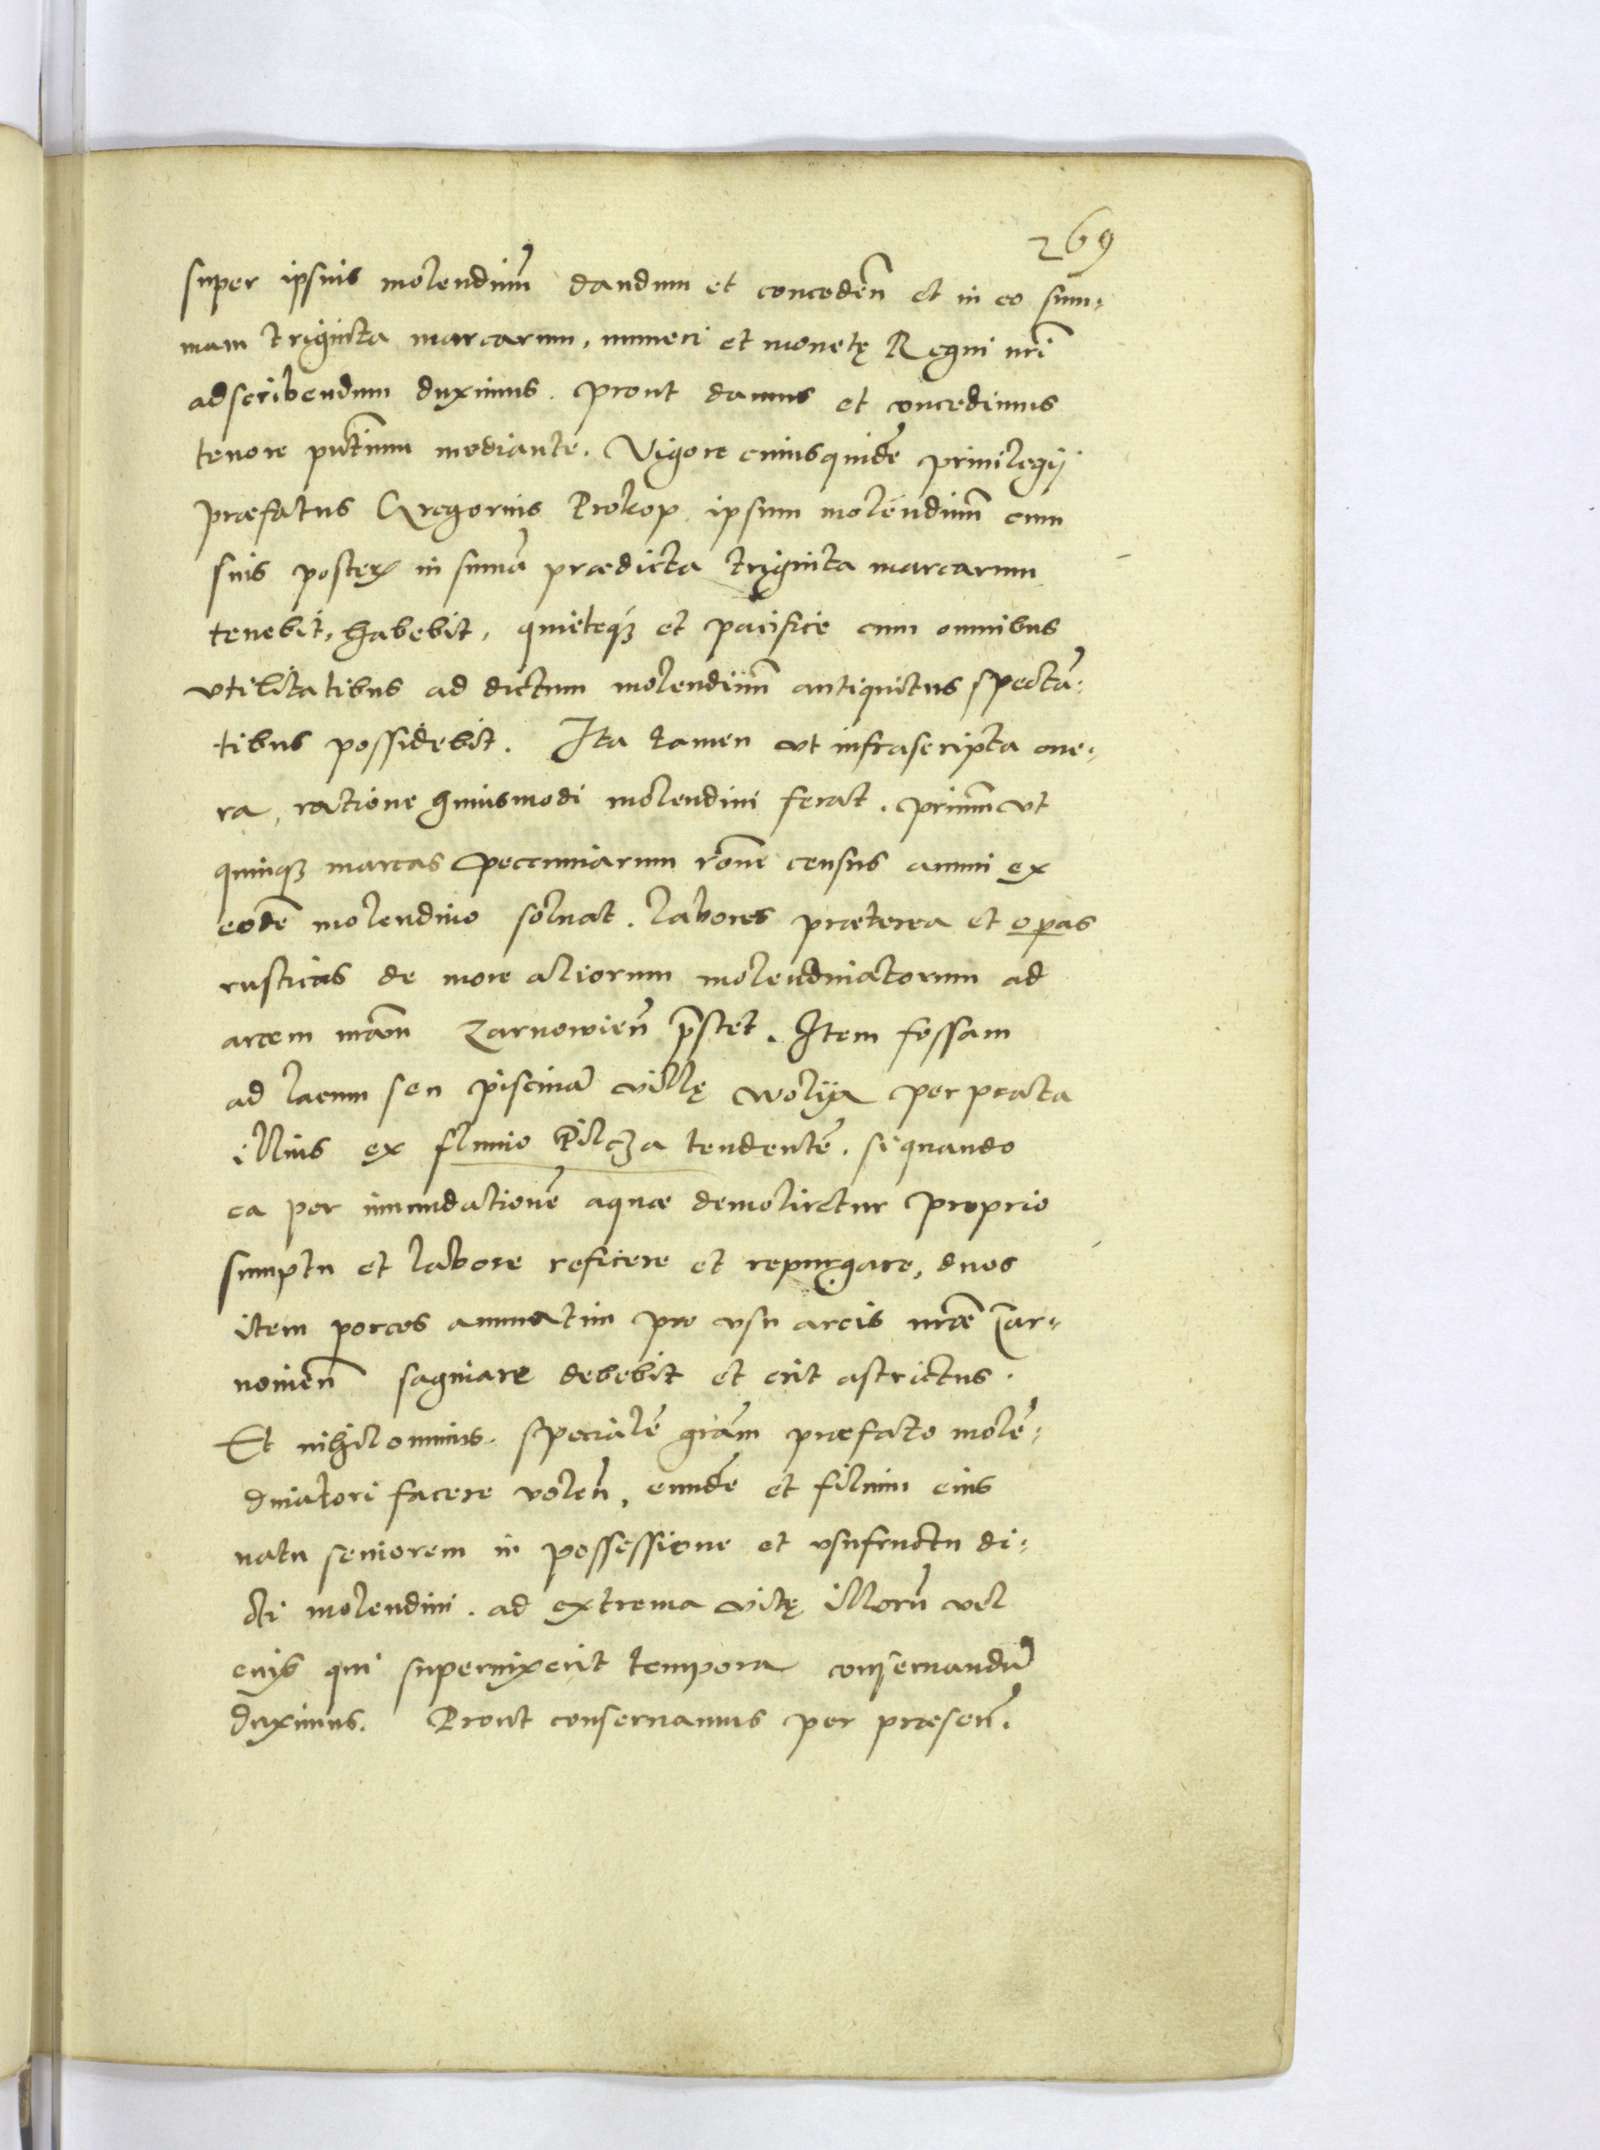 269
super ipsius molendinū dandum et concedēn et in eo sum-
mam triginta marcarum, numeri et monetę Regni nrī
adscribendum duximus. prout damus et concedimus
tenore pn̄tium mediante. Vigore cuiusquidē priuilegij
præfatus Gregorius Prokop ipsum molendinū cum
suis poster in sum̄a prædicta triginta marcarum
tenebit, habebit, quieteq₃ et pacifice cum omnibus
vtilitatibus ad dictum molendinū antiquitus spectā-
tibus possidebit. Ita tamen vt infrascripta one-
ra, ratione huiusmodi molendini ferat. primū vt
quinq₃ marcas pecuniarum rōne census annui ex
eodē molendino soluat. labores præterea et opas
rusticas de more aliorum molendinatorum ad
arcem nrām Zarnowien̄ p̄stet. Item fossam
ad lacum seu piscinā villę wolÿa per prata
illius ex fluuio Pilcza tendentē. si quando
ea per inundationē aquæ demoliretur proprio
sumptu et labore reficere et repurgare, duos
item porcos annuatim pro vsu arcis nræ Czar-
nouien̄ saginare debebit et erit astrictus.
Et nihilominus specialē grām præfato molē-
dinatori facere volen̄, eundē et filium eius
natu seniorem in possessione et vsufructu di-
cti molendini. ad extrema vitę illorū vel
eius qui superuixerit tempora conseruandū
duximus. Prout conseruamus per præsen̄.